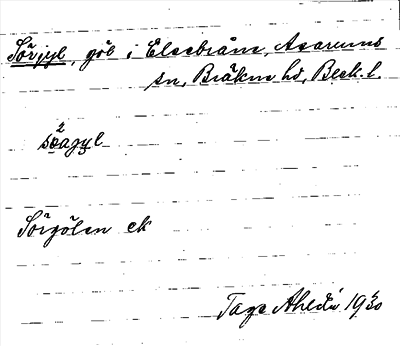 Sörjyl, göl i Elsebråne, Asarums
sn, Bräkne hd, Blek. l.
2
söagyl
Sörgölen ek
Tage Ahldén 1930